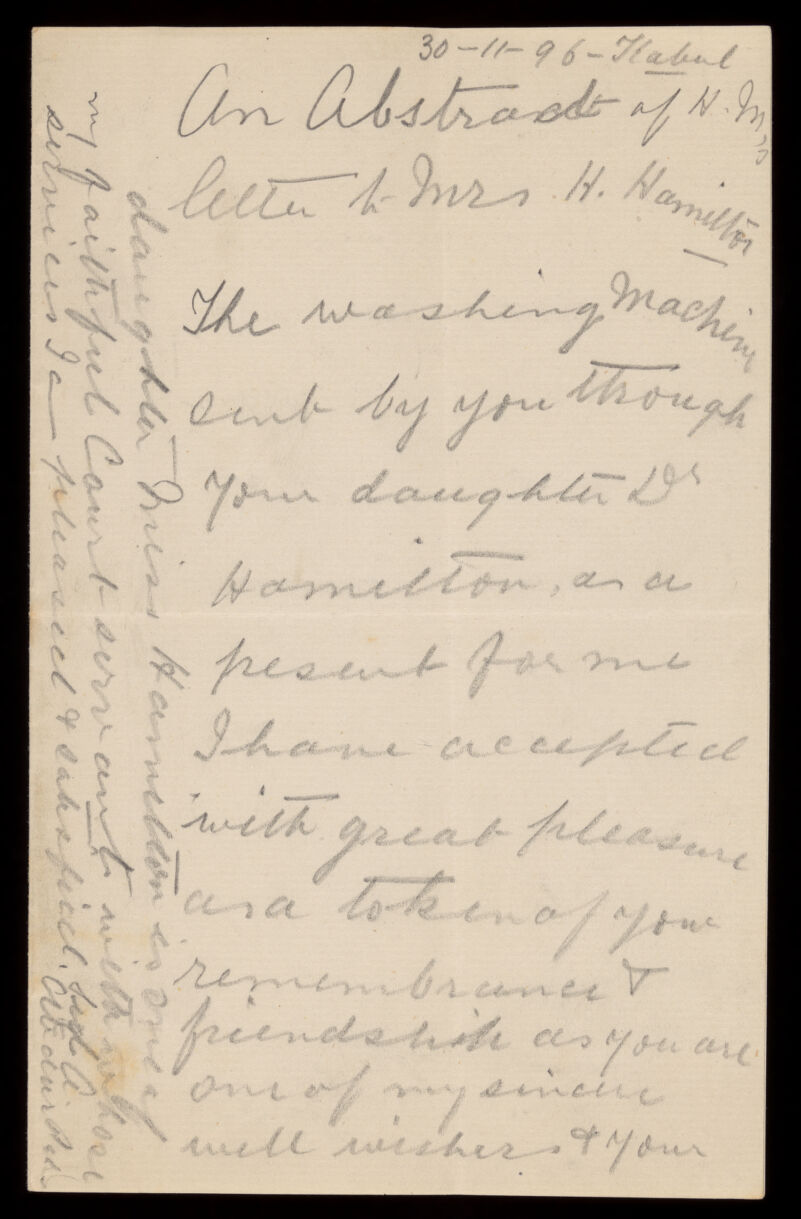 30-11-96-Kabul
An Abstract of H. M's
letter to Mrs H. Hamilton
The washing Machine
sent by you through
your daughter Dr
Hamilton, as a
pesent for me
I have accepted
with great pleasure
as a token of your
remembrance &
friendship as you are
one of my sincere
well wishers & your
daughter Miss Hamilton is one of
my faithful Court servant with whose
services I am pleased & satisfied.